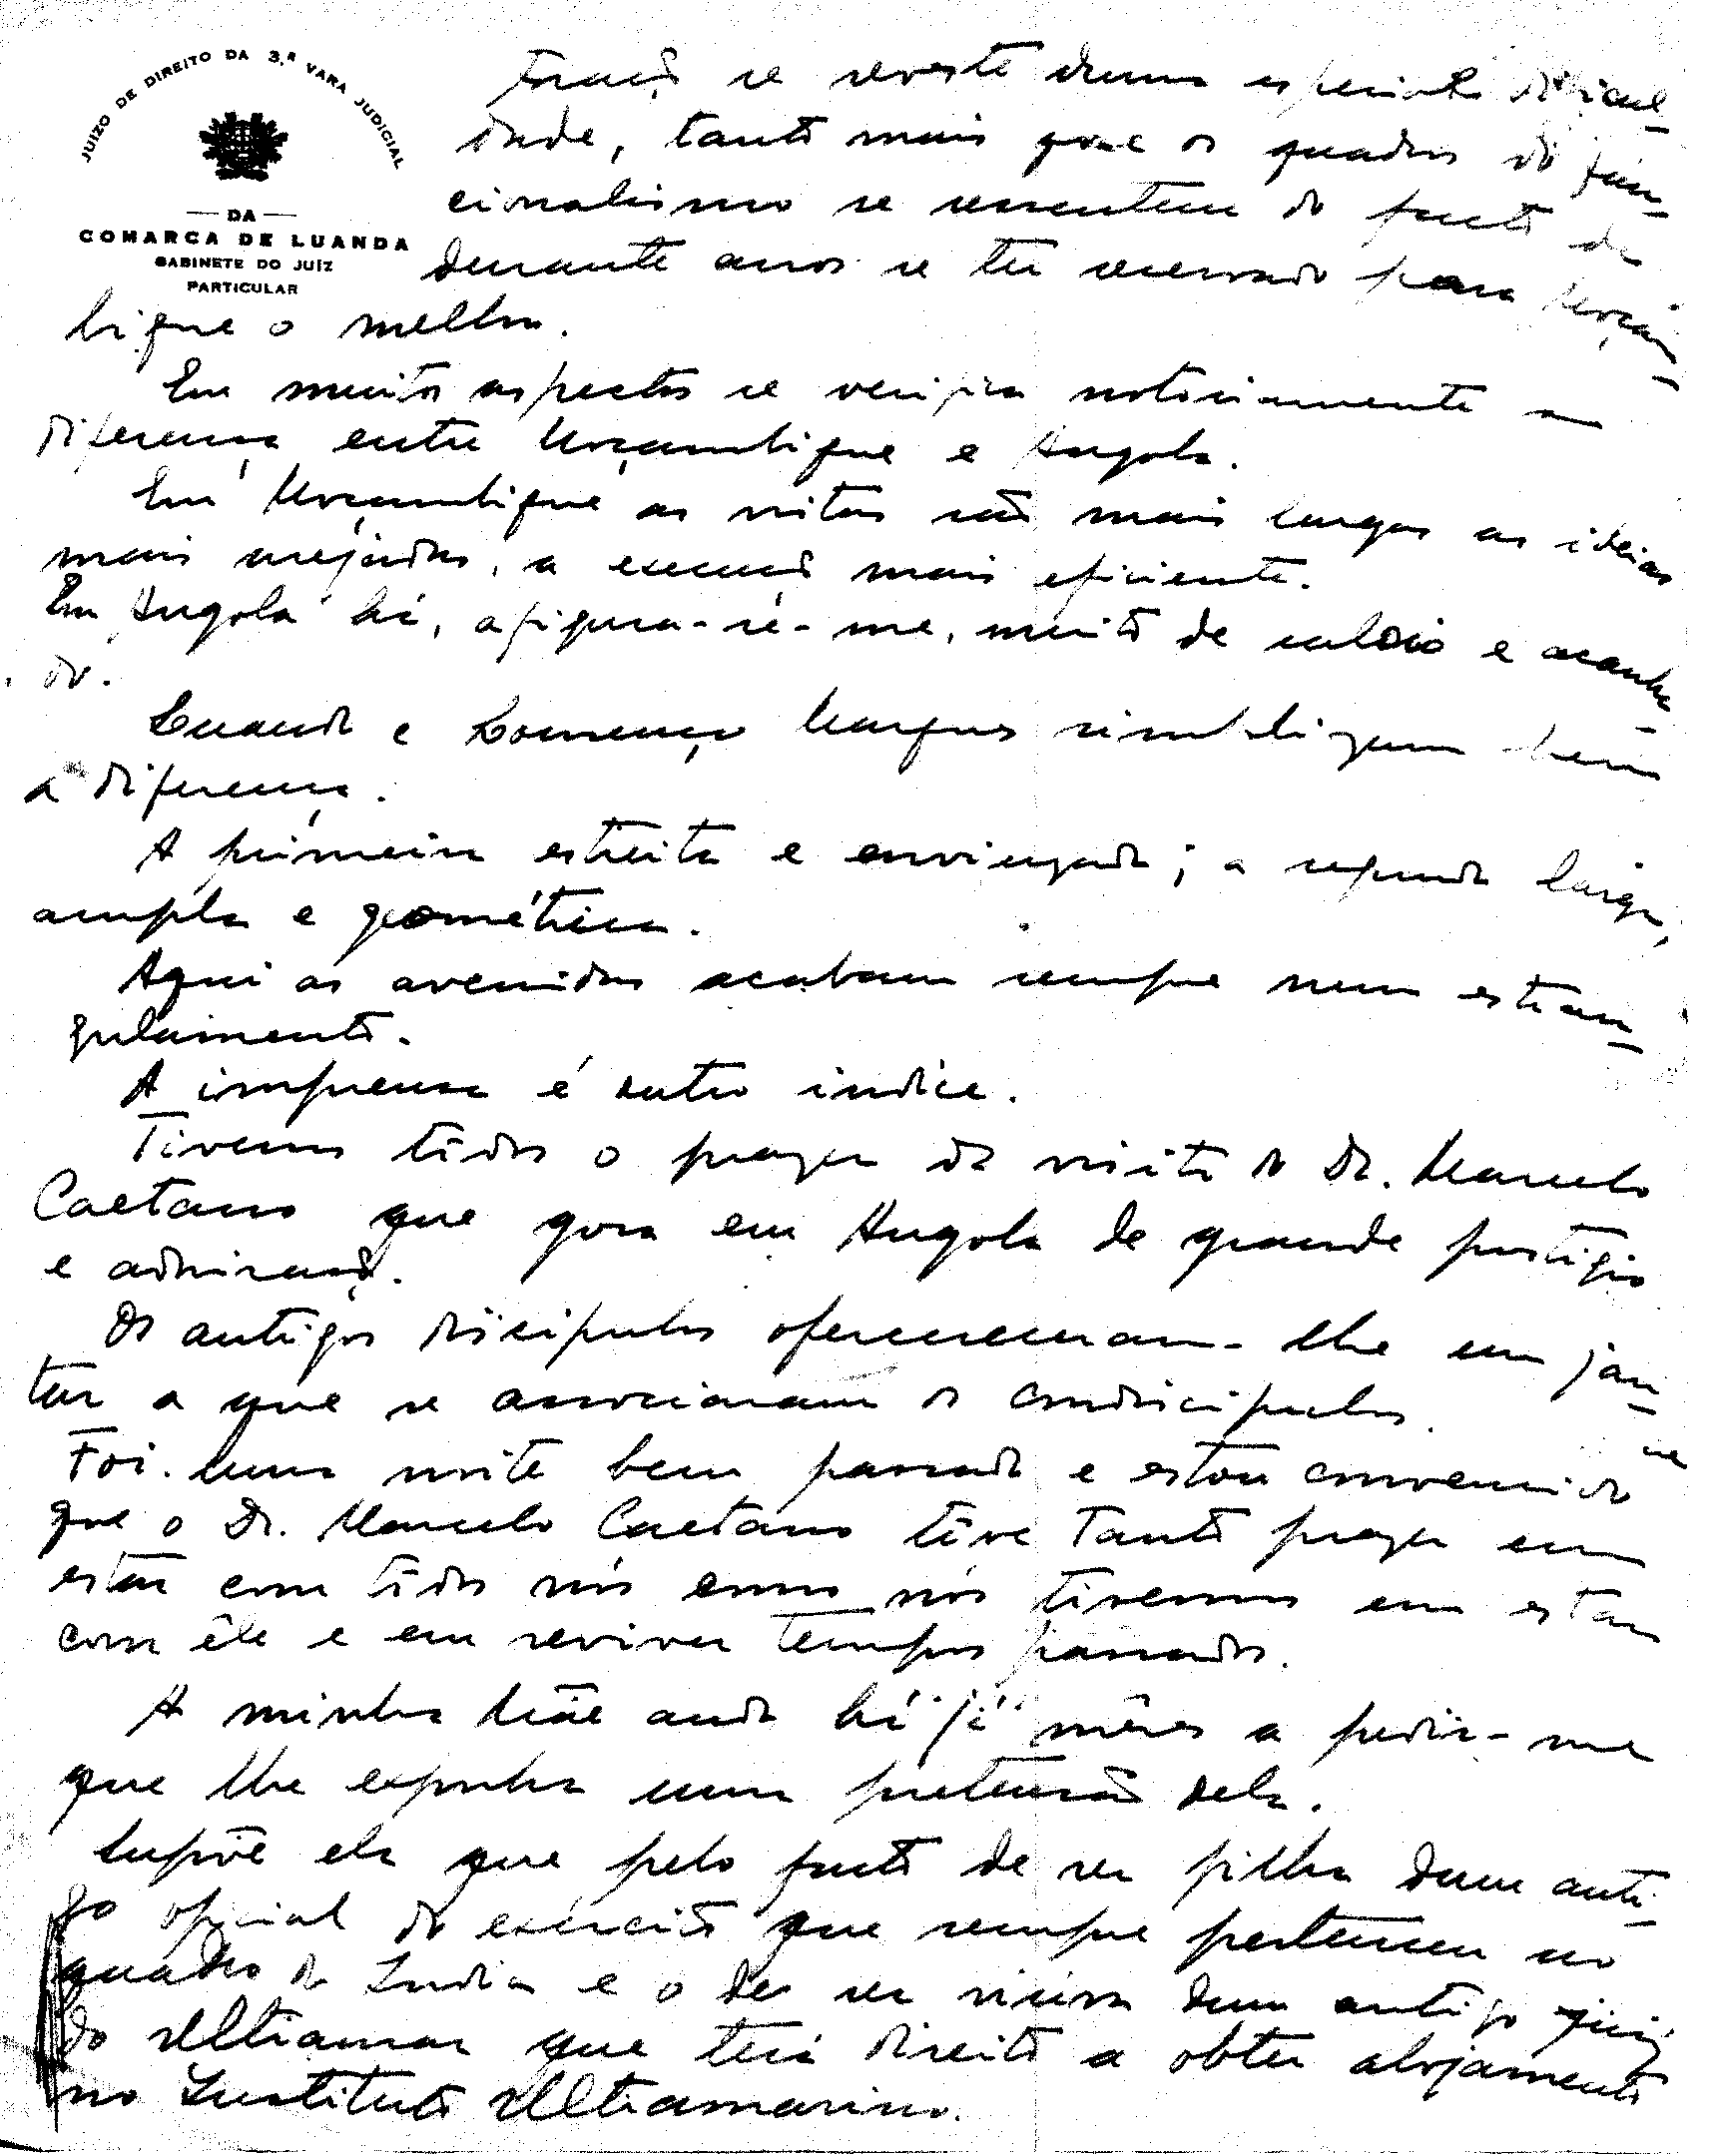 JUIZO DE DIREITO DA 3.ª VARA JUDICIAL
DA
COMARCA DE LUANDA
GABINETE DO JUIZ
PARTICULAR
se reveste duma especial dificul-
dade, tanto mais que os quadros do fun-
cionalismo se ressentem do facto de
durante anos se ter reservado para Moçam-
bique o melhor.
Em muitos aspectos se verifica notoriamente a
diferença entre Moçambique e Angola.
Em Moçambique as vistas são mais largas as ideias
mais arejadas, a execução mais eficiente.
Em Angola há, afigura-se-me, muito de saloio e acanha-
do.
Luanda e Lourenço Marques simbolizam bem
a diferença.
A primeira estreita e enviezada; a segunda larga,
ampla e geométrica.
Aqui as avenidas acabam sempre num estran-
gulamento.
A imprensa é outro indice.
Tivemos todos o prazer da visita do Dr. Marcelo
Caetano que goza em Angola de grande prestigio
e admiração.
Os antigos discipulos ofereceram-lhe um jan-
tar a que se associaram os condiscipulos.
Foi uma noite bem passada e estou convencido
que o Dr. Marcelo Caetano têve tanto prazer em
estar com tôdos nós como nós tivemos em estar
com êle e em reviver tempos passados.
A minha Mãe anda há já mêses a pedir-me
que lhe exponha uma pretensão dela.
Supõe ela que pelo facto de ser filha dum anti-
go oficial do exército que sempre pertenceu ao
quadro da India e o de ser viúva dum antigo juiz
do Ultramar que terá direito a obter alojamento
no Instituto Ultramarino.